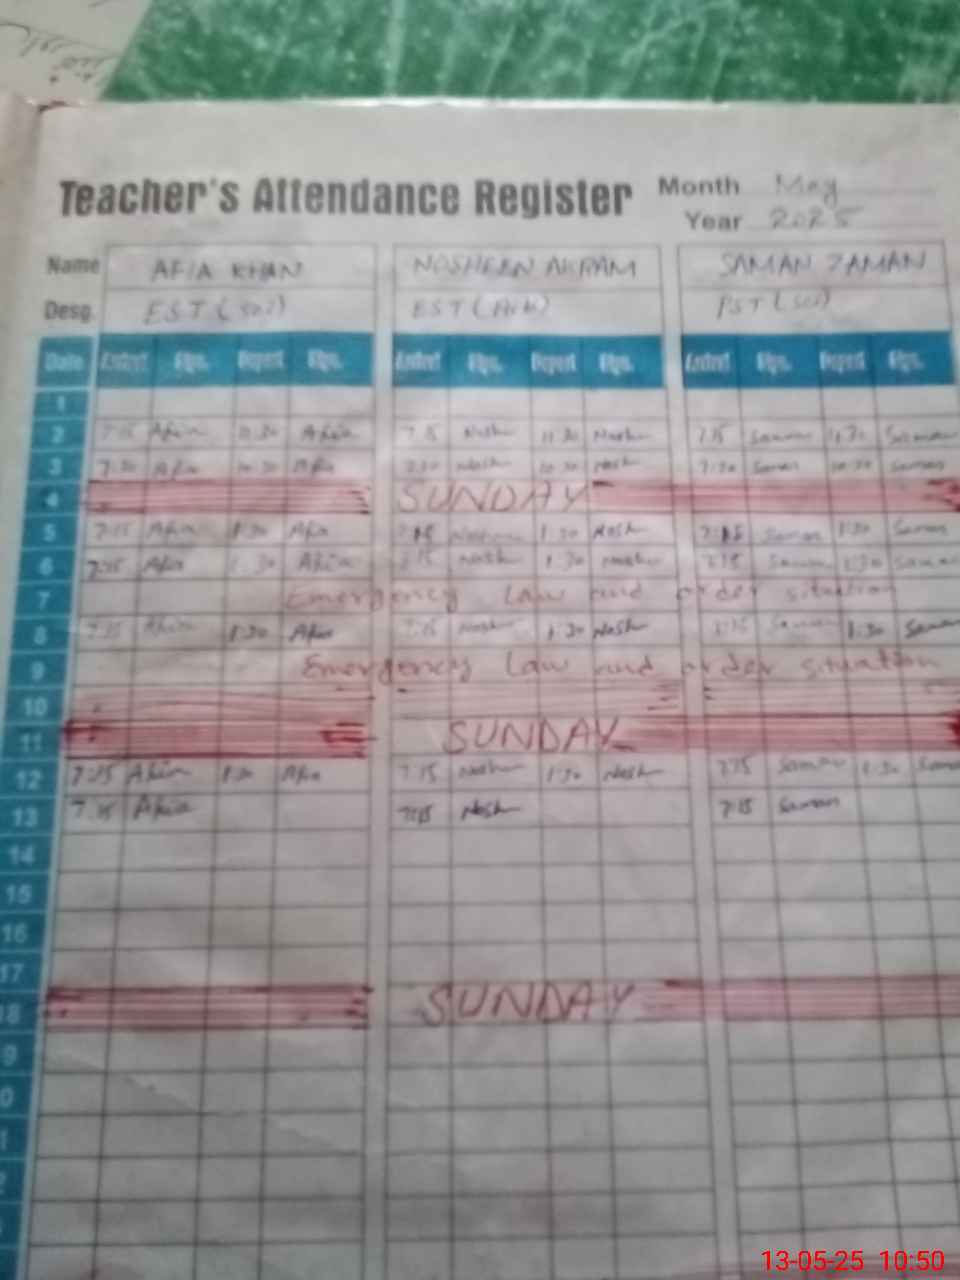 Teacher's Attendance Register Month May
Year 2025
Name AFIA KHAN NOSHEEN AKRAM SAMAN ZAMAN
Desg. EST (Sci) EST (Arb) PST (Sci)
Date Depart Sign. Depart Sign. Depart Sign.
1
2 7:15 Afia 11:30 Afia 7:15 Nosh 11:30 Nosh 7:15 Saman 11:30 Saman
3 7:30 Afia 10:30 Afia 7:30 Nosh 10:30 Nosh 7:30 Saman 10:30 Saman
4 SUNDAY
5 7:15 Afia 1:30 Afia 7:15 Nosh 1:30 Nosh 7:15 Saman 1:30 Saman
6 7:15 Afia 1:30 Afia 7:15 Nosh 1:30 Nosh 7:15 Saman 1:30 Saman
7 Emergency Law and order situation
8 7:15 Afia 1:30 Afia 7:15 Nosh 1:30 Nosh 7:15 Saman 1:30 Saman
9 Emergency Law and order situation
10
11 SUNDAY
12 7:15 Afia 1:30 Afia 7:15 Nosh 1:30 Nosh 7:15 Saman 1:30 Sama
13 7:15 Afia 7:15 Nosh 7:15 Saman
14
15
16
17
8 SUNDAY
9
0
1
2
13-05-25 10:50